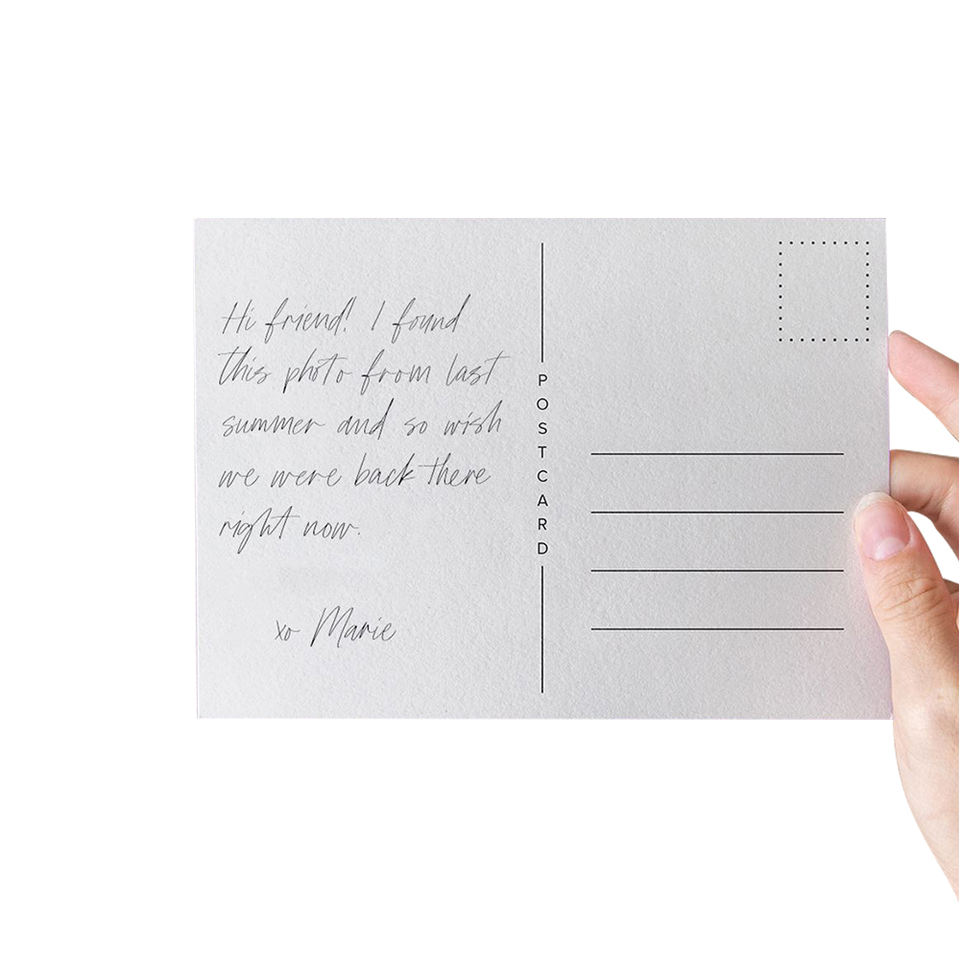 Hi friend! I found
this photo from last
summer and so wish
we were back there
right now.
xo Marie
POSTCARD